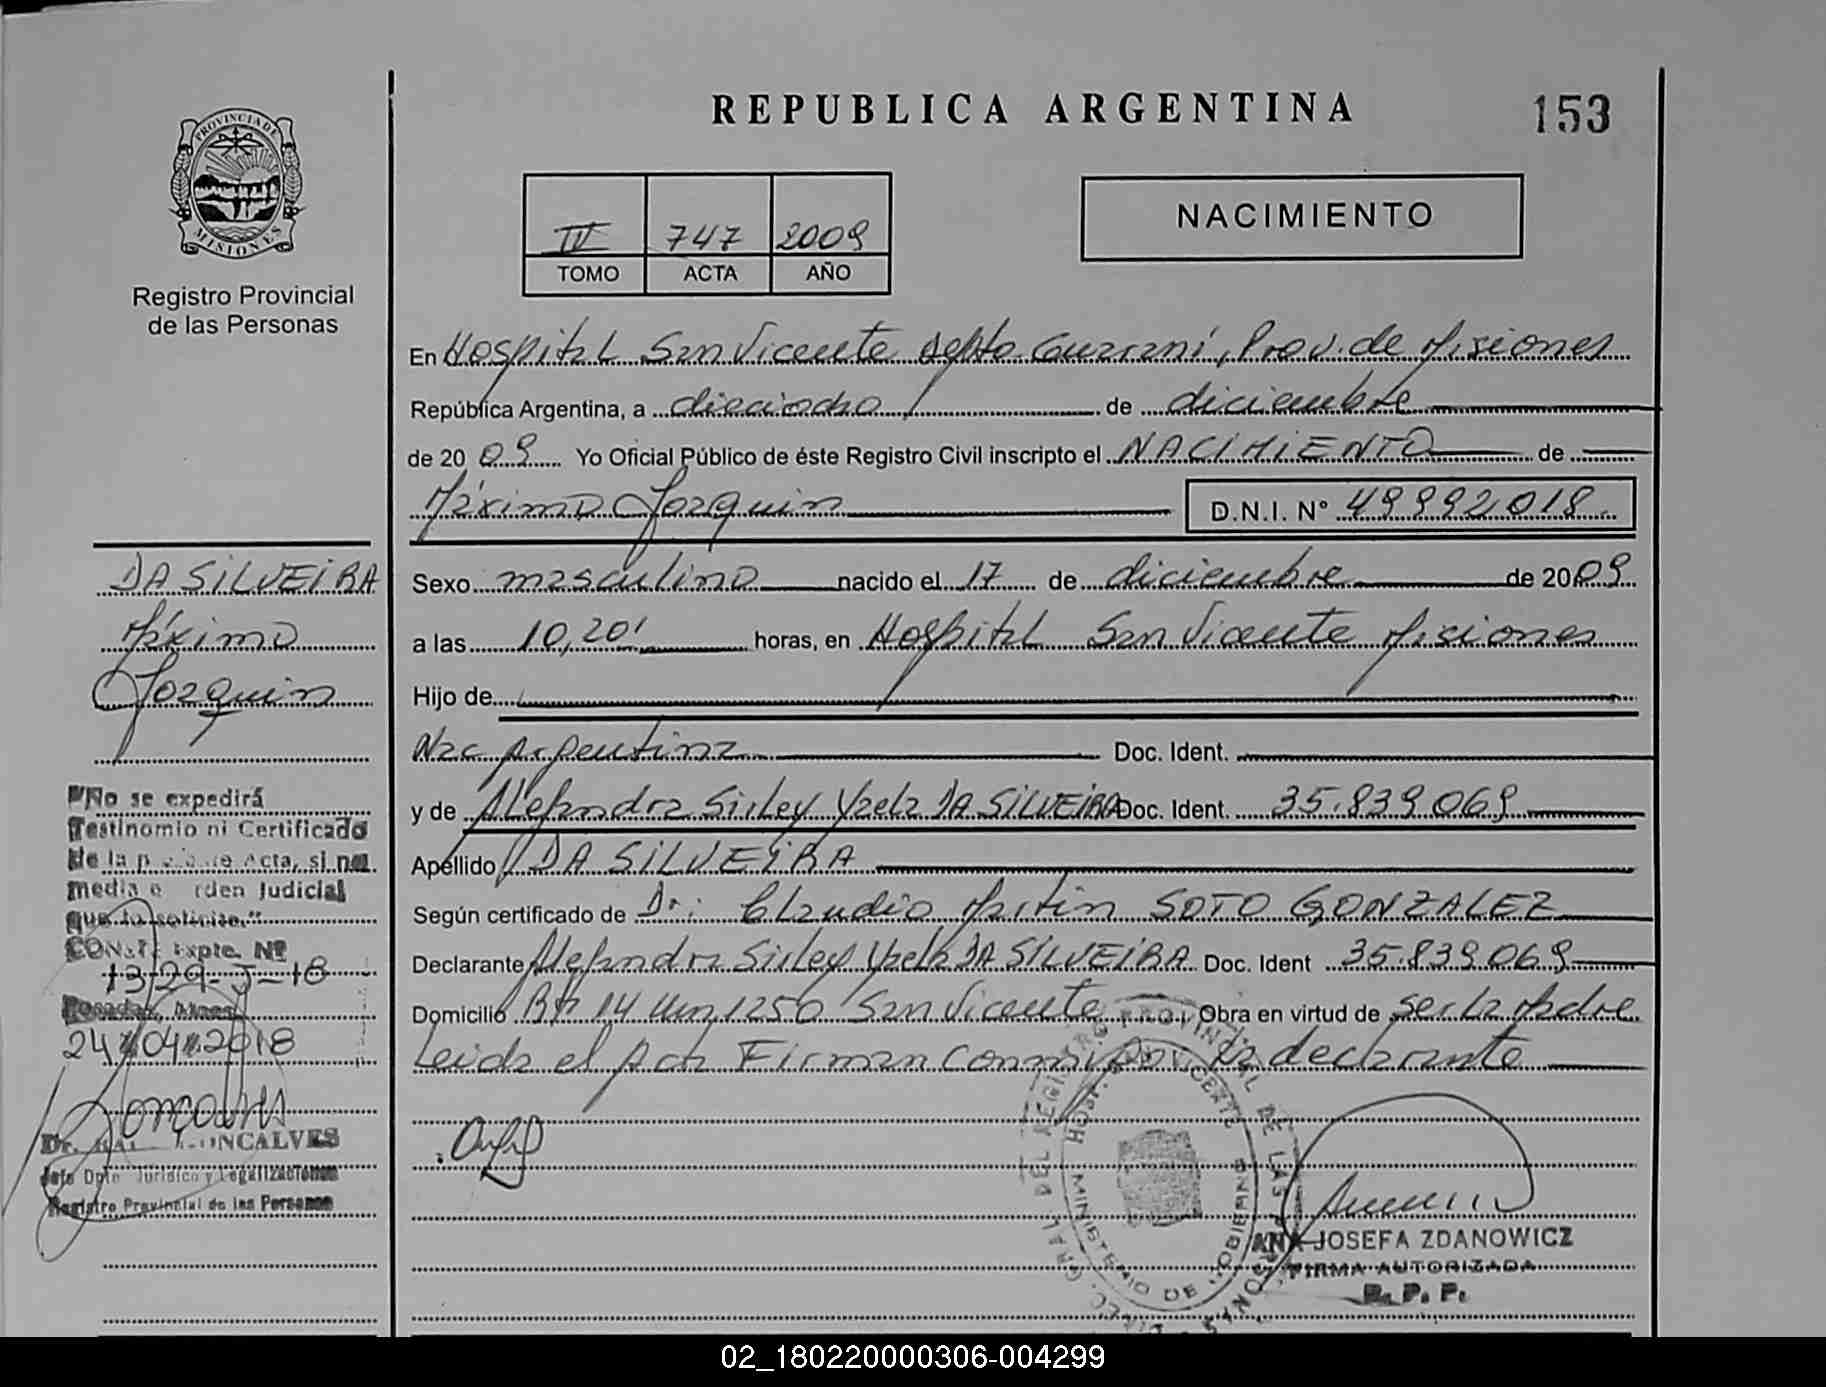 REPUBLICA ARGENTINA
153
PROVINCIA DE
MISIONES
Registro Provincial
de las Personas
IV 747 2009
TOMO ACTA AÑO
NACIMIENTO
En Hospital San Vicente depto. Guaraní, Prov. de Misiones
República Argentina, a dieciocho de diciembre
de 2009 Yo Oficial Público de éste Registro Civil inscripto el NACIMIENTO de
Máximo Joaquin D.N.I. N° 49992018
Sexo masculino nacido el 17 de diciembre de 2009
a las 10,20' horas, en Hospital San Vicente Misiones
Hijo de
Nac Argentina Doc. Ident.
y de Alejandra Sirley Yaela DA SILVEIRA Doc. Ident. 35.839.069
Apellido DA SILVEIRA
Según certificado de Dr: Claudio Martin SOTO GONZALEZ
Declarante Alejandra Sirley Yaela DA SILVEIRA Doc. Ident 35.839.069
Domicilio 14 1250 San Vicente Obra en virtud de ser la Madre
Leida el Acta Firman la declarante
DA SILVEIRA
Máximo
Joaquin
"No se expedirá
Testimonio ni Certificado
de la Acta, si no
media Judicial
que lo solicite."
Expte. Nº
1329-J-18
Posadas,
24 04 2018
Dr. GONCALVES
Jefe Dpto Juridico y Legalizaciones
Registro Provincial de las Personas
DEL REGISTRO PROVINCIAL DE LAS PERSONAS
HOSP. VICENTE
MINISTERIO DE GOBIERNO
ANA JOSEFA ZDANOWICZ
FIRMA AUTORIZADA
R. P. P.
02_180220000306-004299